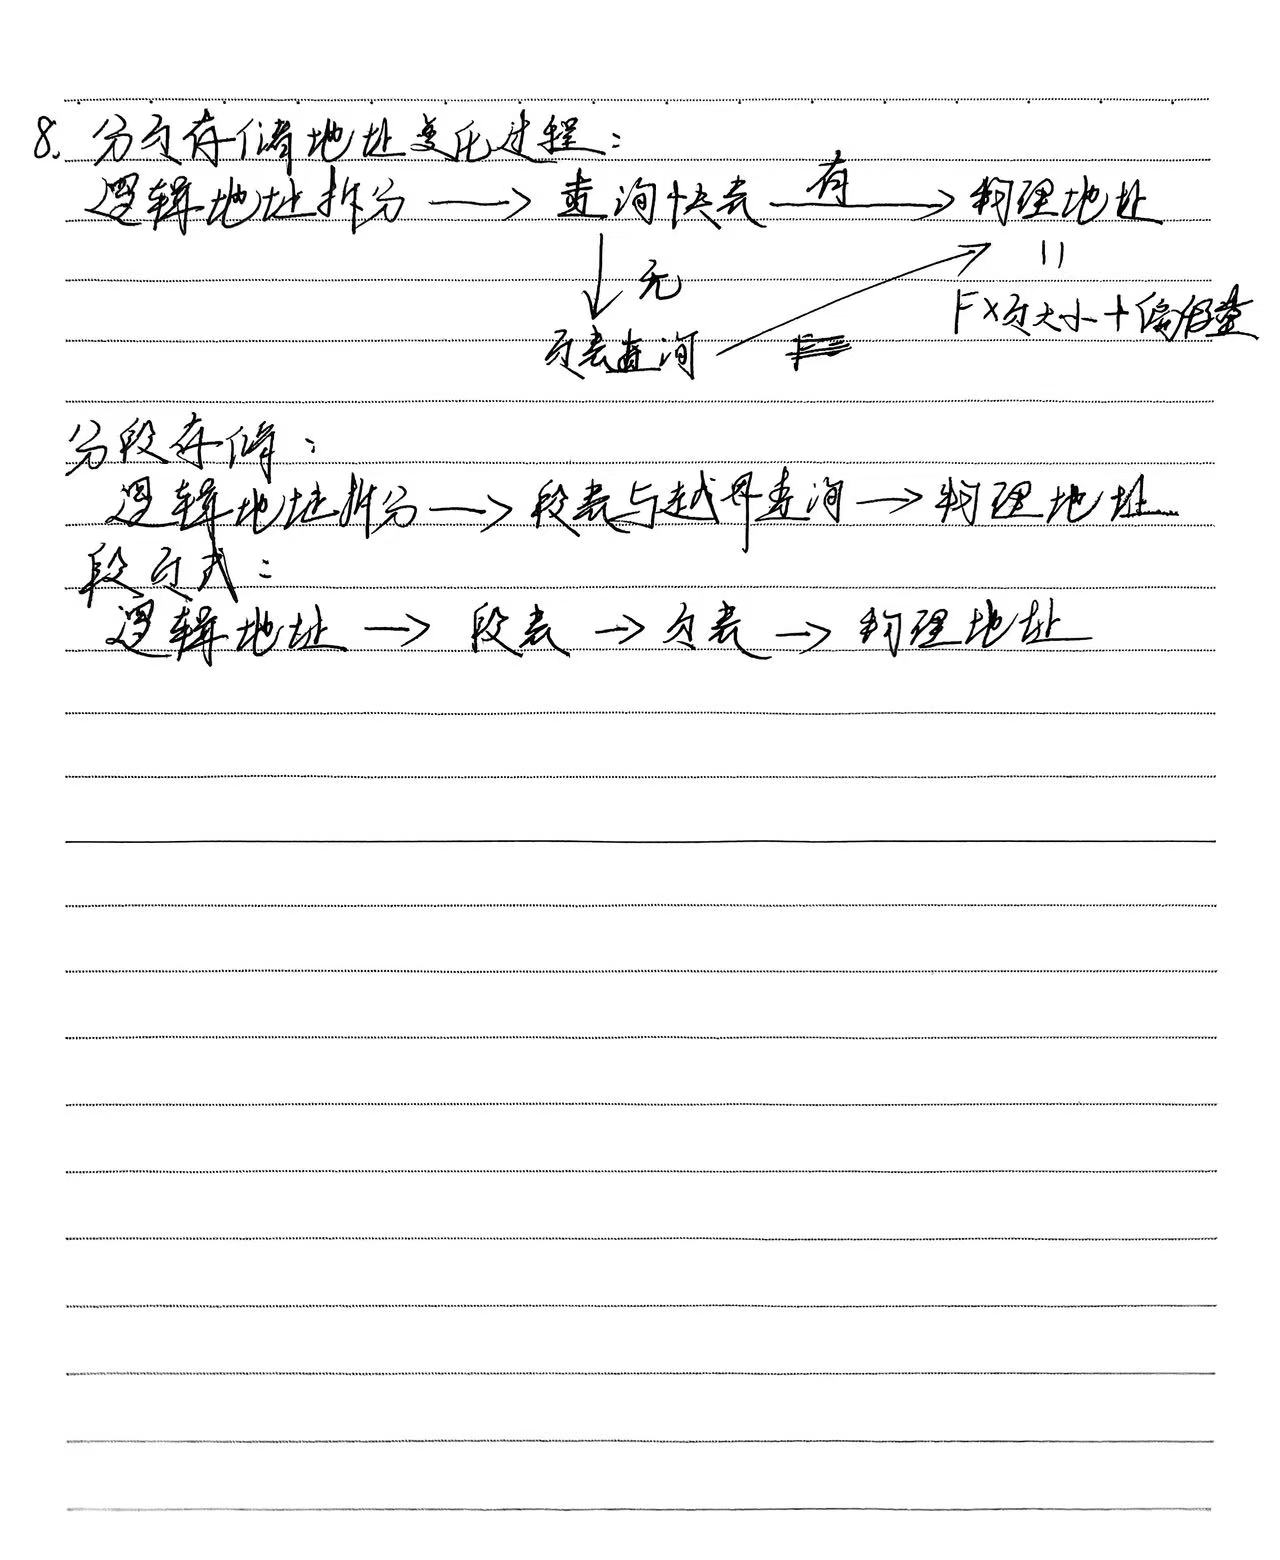 8. 分页存储地址变化过程：
逻辑地址拆分 → 查询快表 有→ 物理地址
↓ 无 ||
F×页大小+偏移量
页表查询
分段存储：
逻辑地址拆分 → 段表与越界查询 → 物理地址
段页式：
逻辑地址 → 段表 → 页表 → 物理地址